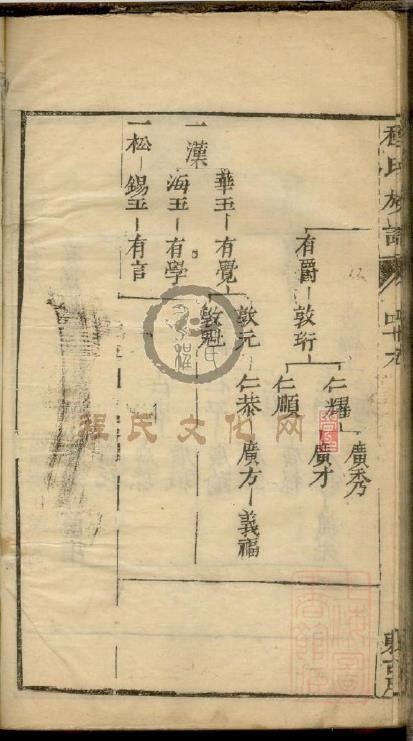 程氏族譜
有爵 敦珩 仁耀 廣秀
廣才
仁順
華玉 有覺 敦元 仁恭 廣方 義福
敦魁
一漢
海玉 有學
一松 錫玉 有言
程氏文化网